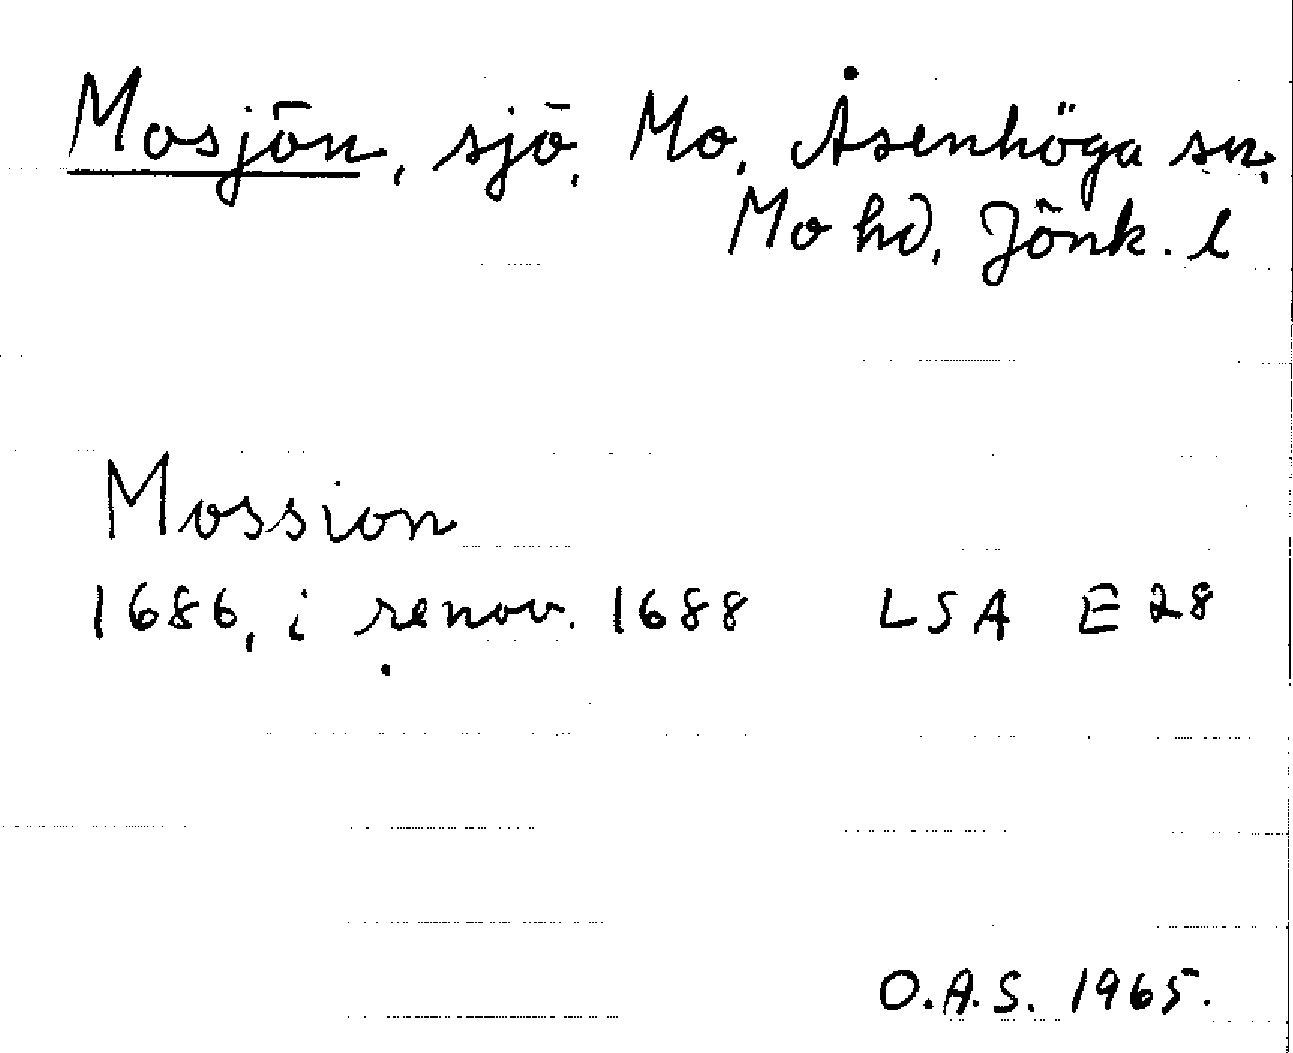 Mosjön, sjö, Mo, Åsenhöga sn,
Mo hd, Jönk. l
Mossion
1686, i renov. 1688 LSA E 28
O.A.S. 1965.